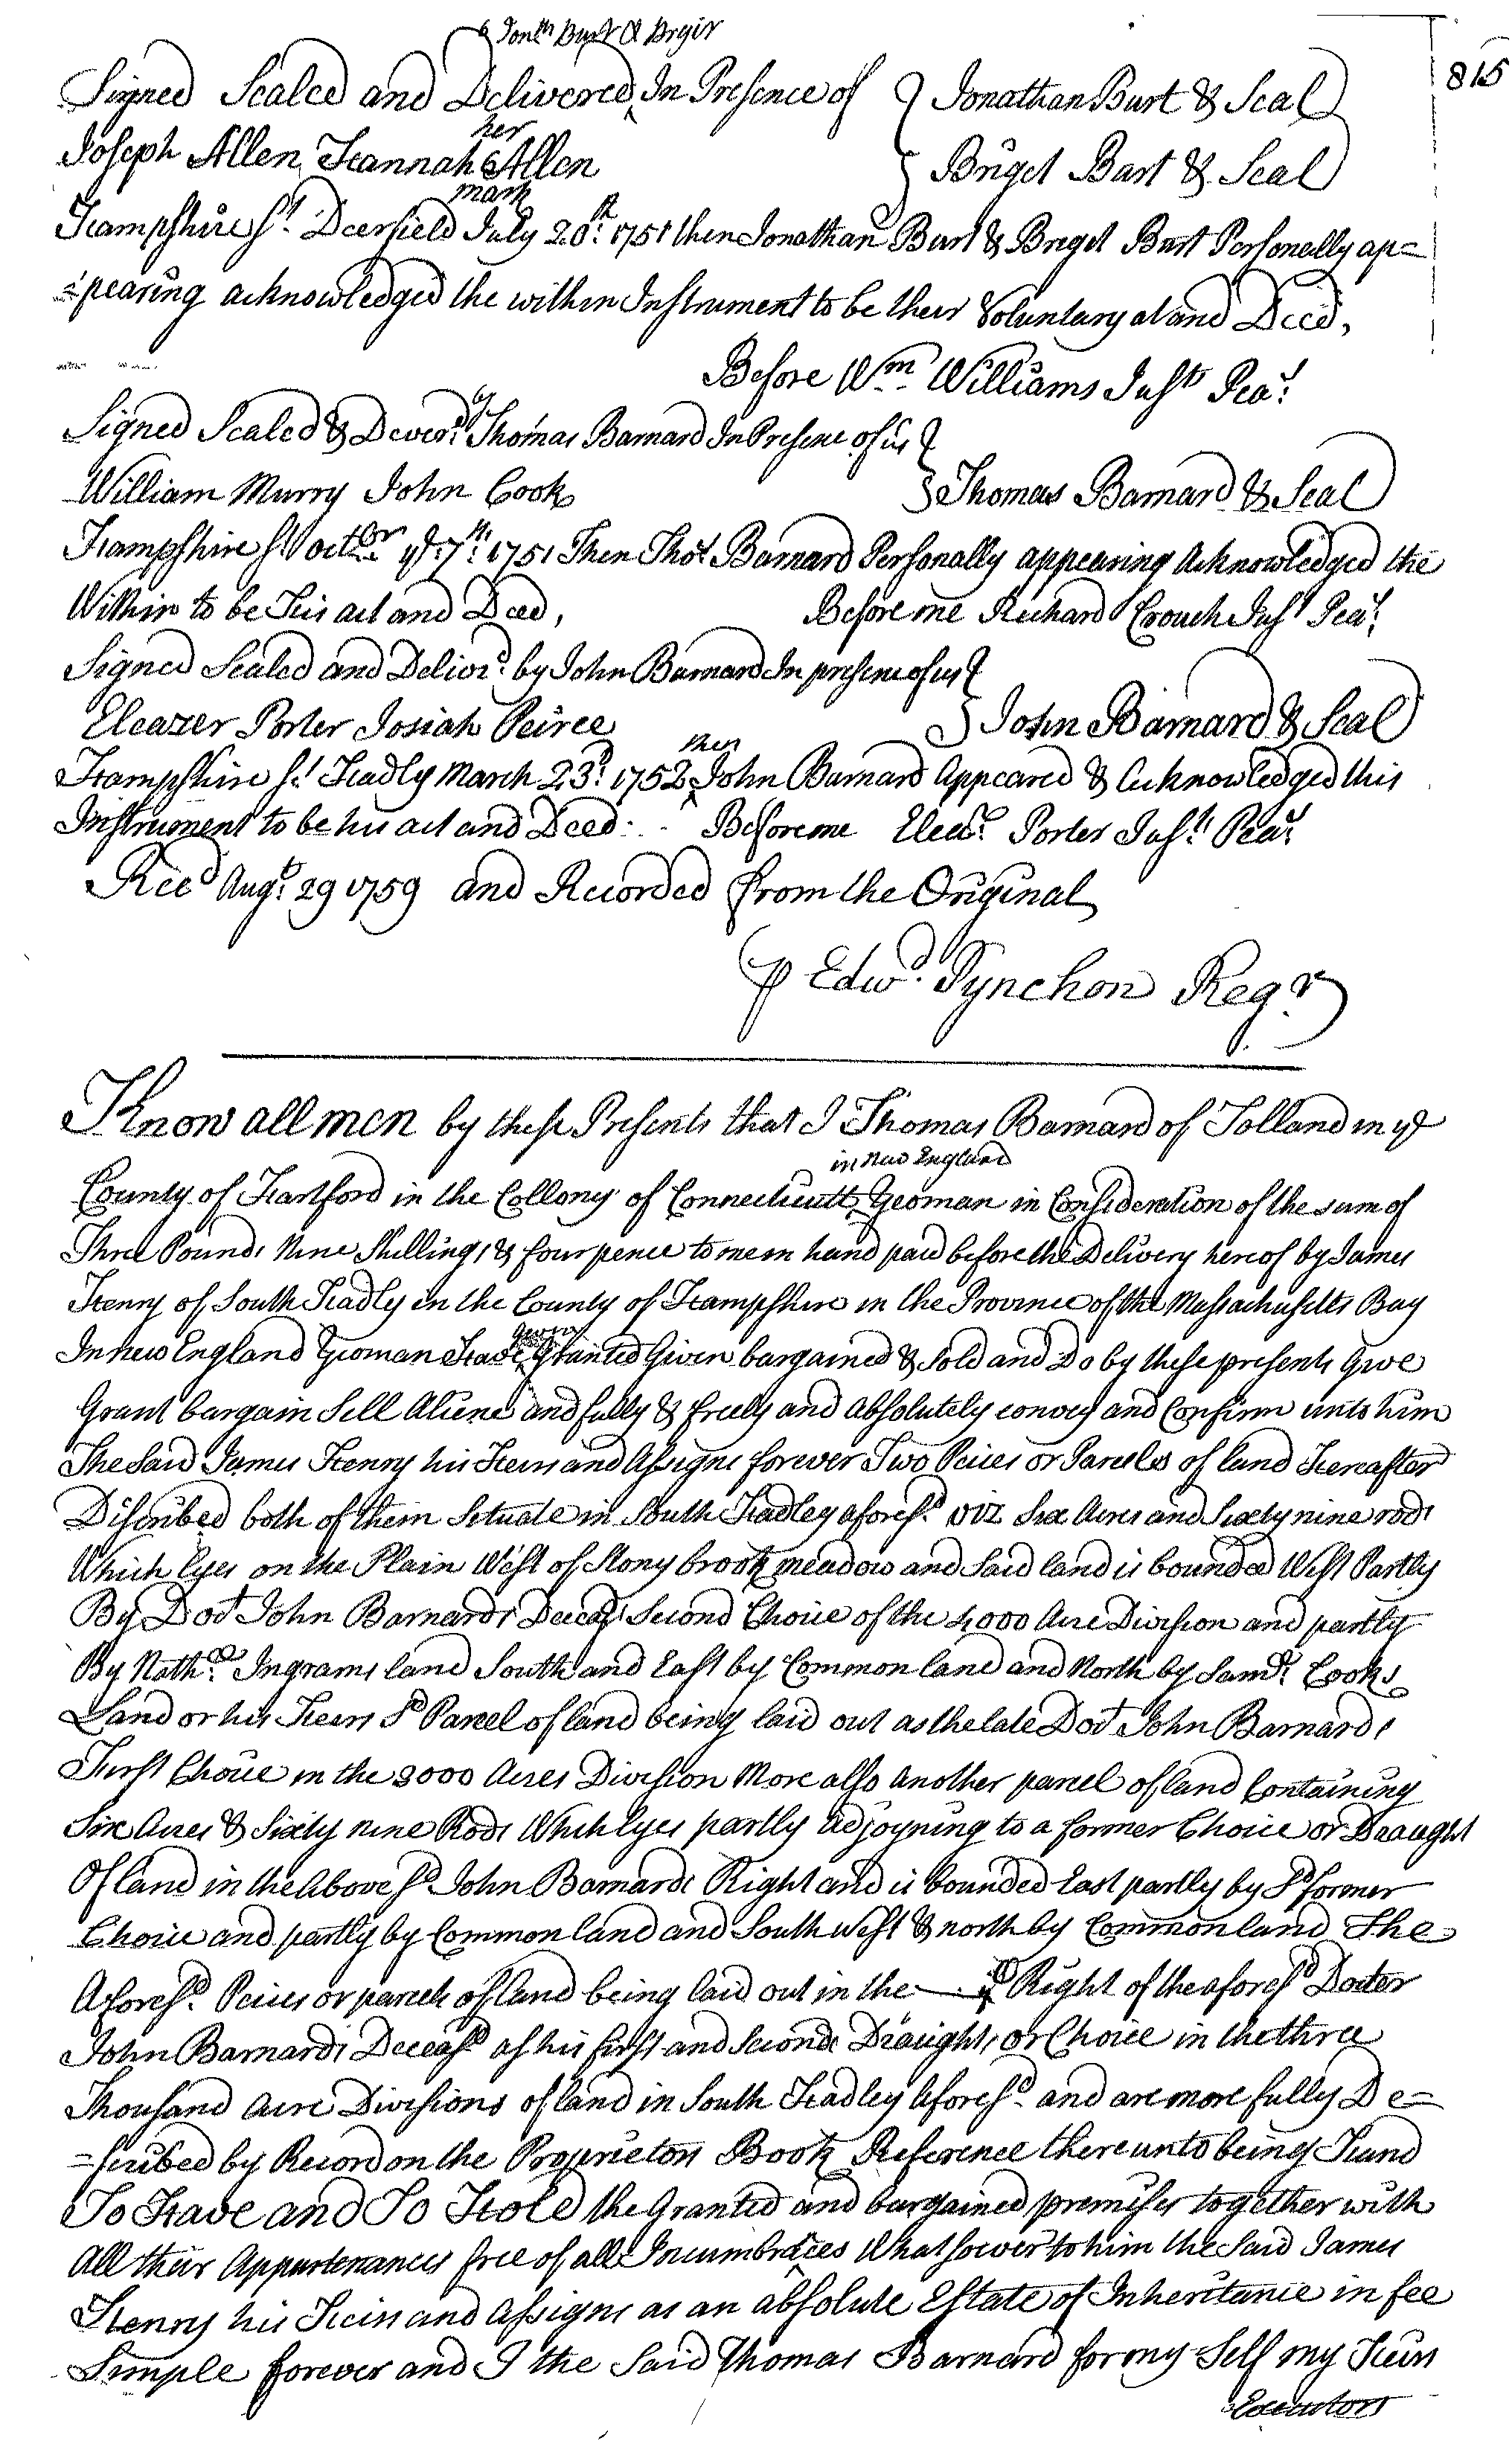 by Jonth Burt & Brgit
815
Signed Sealed and Delivered, In Presence of } Jonathan Burt & Seal
her
Joseph Allen, Hannah Allen } Briget Burt & Seal
mark
Hampshire Ss. Deerfield July 20th. 1751 then Jonathan Burt & Briget Burt Personally ap=
=pearing acknowledged the within Instrument to be their Voluntary act and Deed,
Before Wm. Williams Just Pea:
Signed Sealed & Deverd. by Thomas Barnard In Presence of us }
William Murry John Cook } Thomas Barnard & Seal
Hampshire Ss Octbr ye 7th. 1751 Then Thos Barnard Personally appearing Acknowledged the
Within to be His act and Deed, Before me Richard Crouch Just Pea:
Signed Sealed and Delivrd. by John Barnard In presence of us }
Eleazer Porter Josiah Peirce } John Barnard & Seal
then
Hampshire Ss. Hadly March 23d. 1752 John Barnard Appeared & Acknowledged this
Instrument to be his act and Deed. Before me Eleazr. Porter Just. Peac
Recd Augt. 29 1759 and Recorded from the Original
P Edwd. Pynchon Regr.
Know all men by these Presents that I Thomas Barnard of Tolland in ye
in New England
County of Hartford in the Collony of Connecticutt, Yeoman in Consideration of the sum of
Three Pounds Nine Shillings & four pence to me in hand paid before the Delivery hereof by James
Henry of South Hadley in the County of Hampshire in the Province of the Massachusetts Bay
In new England Yeoman Have Granted Given bargained & Sold and Do by these presents Give
Grant bargain Sell Aliene and fully & freely and absolutely convey and Confirm unto him
The Said James Henry his Heirs and Assigns forever Two Peices or Parcels of land Hereafter
Discribed both of them Situate in South Hadley aforesd. viz Six Acres and Sixty nine rods
Which lyes on the Plain West of Stony brook meadow and Said land is bounded West Partly
By Doct John Barnards Decead Second Choice of the 4000 Acre Division and partly
By Nathll. Ingrams land South and East by Common land and North by Samll. Cooks
Land or his Heirs Sd Parcel of land being laid out as the late Doct John Barnards
First Choice in the 3000 Acres Division More also Another parcel of land Containing
Six Acres & Sixty nine Rods Which lyes partly Adjoyning to a former Choice or Draught
Of land in the Above sd. John Barnards Right and is bounded East partly by Sd former
Choice and partly by Common land and South West & north by Common land The
Aforesd. Peices or parcels of land being laid out in the Right of the aforesd Docter
John Barnards Deceasd as his first and Second Draughts or Choice in the three
Thousand Acre Divisions of land in South Hadley Aforesd. and are more fully De=
=scribed by Record on the Proprietors Book Reference thereunto being Hand
To Have and To Hold the Granted and bargained premises together with
All their Appurtenances free of all Incumbraces Whatsoever to him the Said James
Henry his Heirs and Assigns as an absolute Estate of Inheritance in fee
Simple forever and I the Said Thomas Barnard for my Self my Heirs
Executors